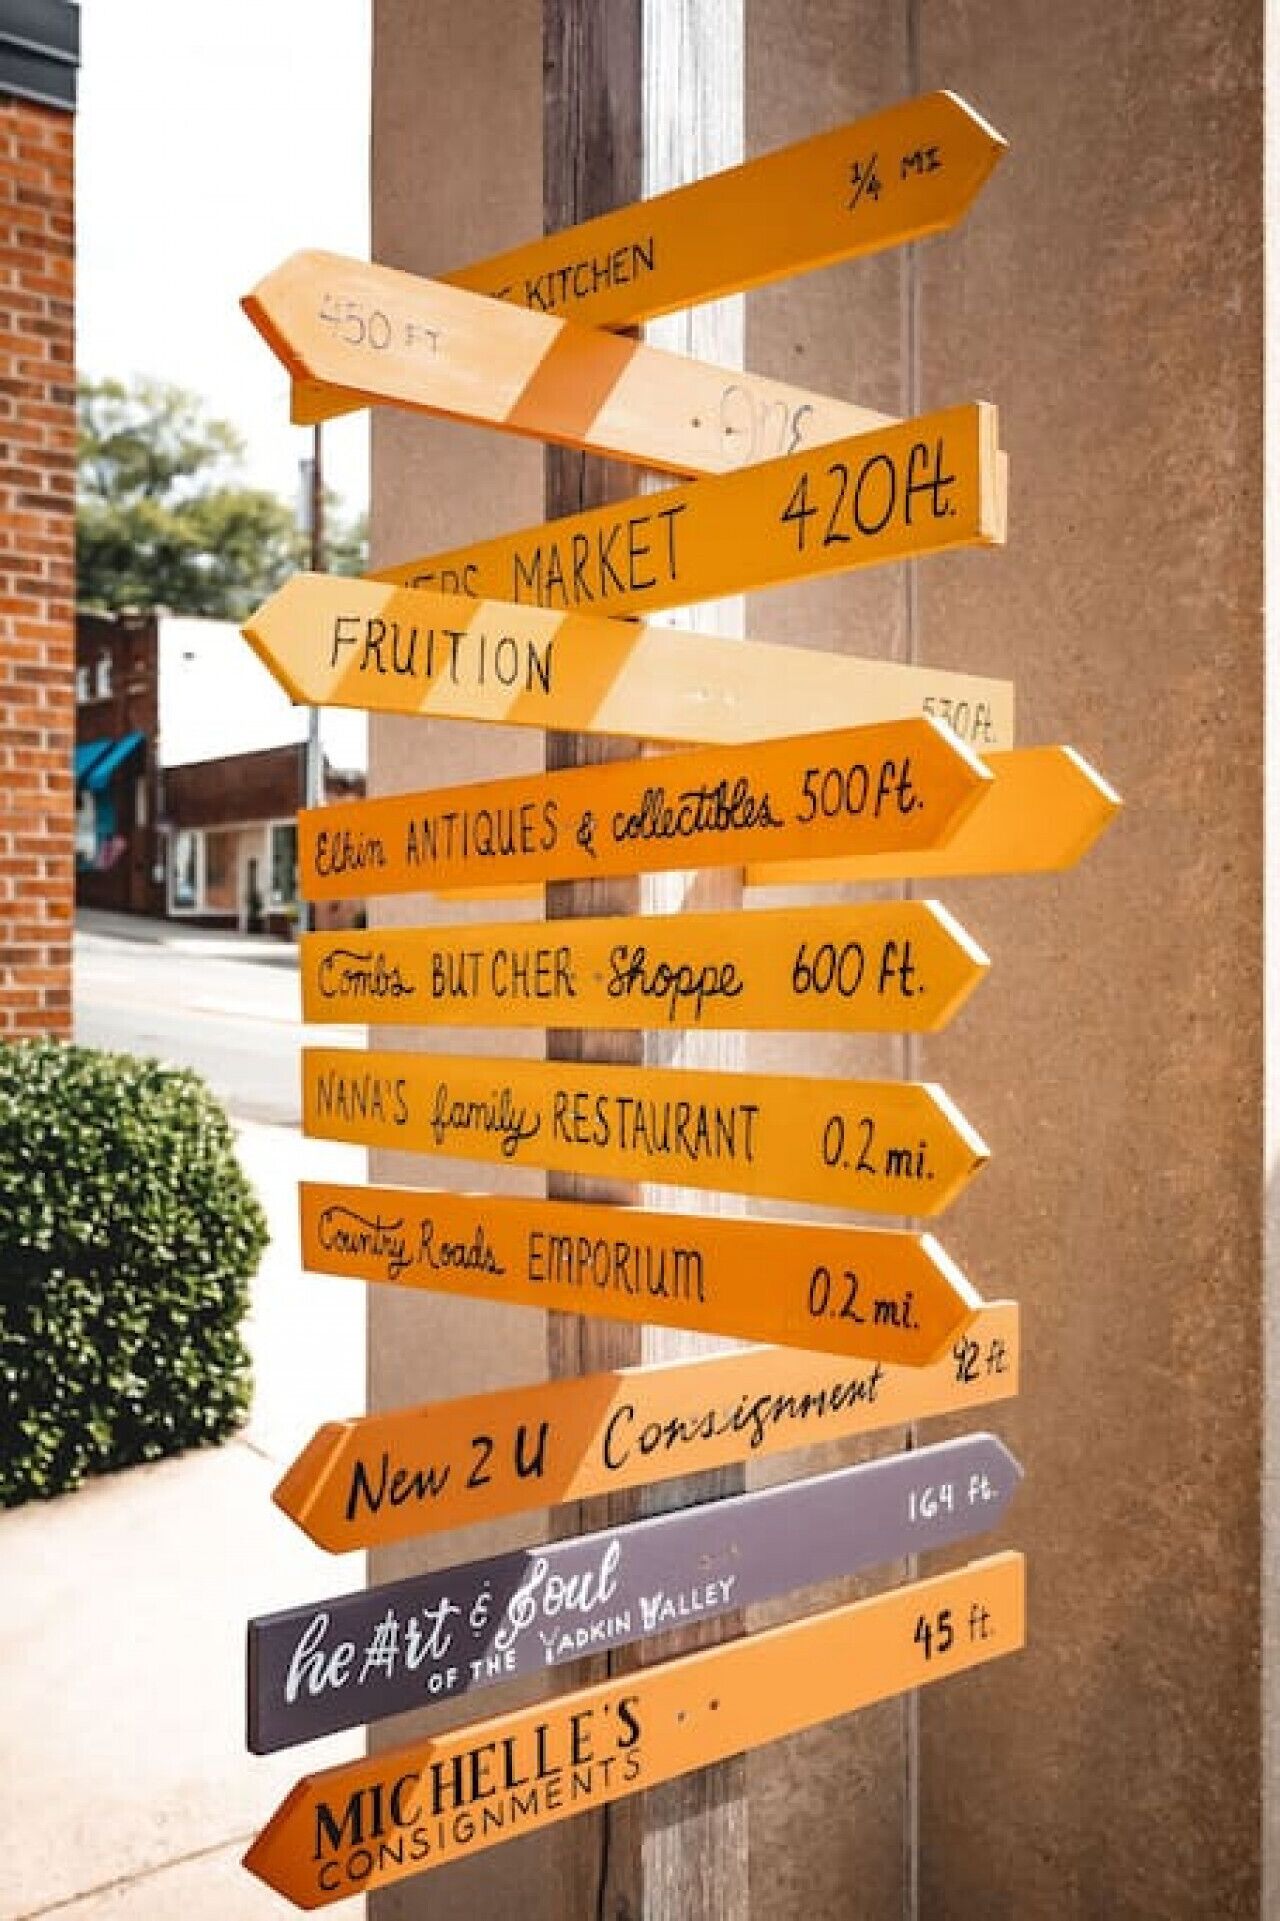 1/4 MI
KITCHEN
450 FT
MARKET 420ft.
FRUITION 530ft.
Elkin ANTIQUES & collectibles 500ft.
Combs BUTCHER Shoppe 600 ft.
NANA'S family RESTAURANT 0.2 mi.
Country Roads EMPORIUM 0.2 mi.
New 2 U Consignment 92 ft
heArt & Soul 164 ft.
OF THE YADKIN VALLEY
MICHELLE'S 45 ft.
CONSIGNMENTS